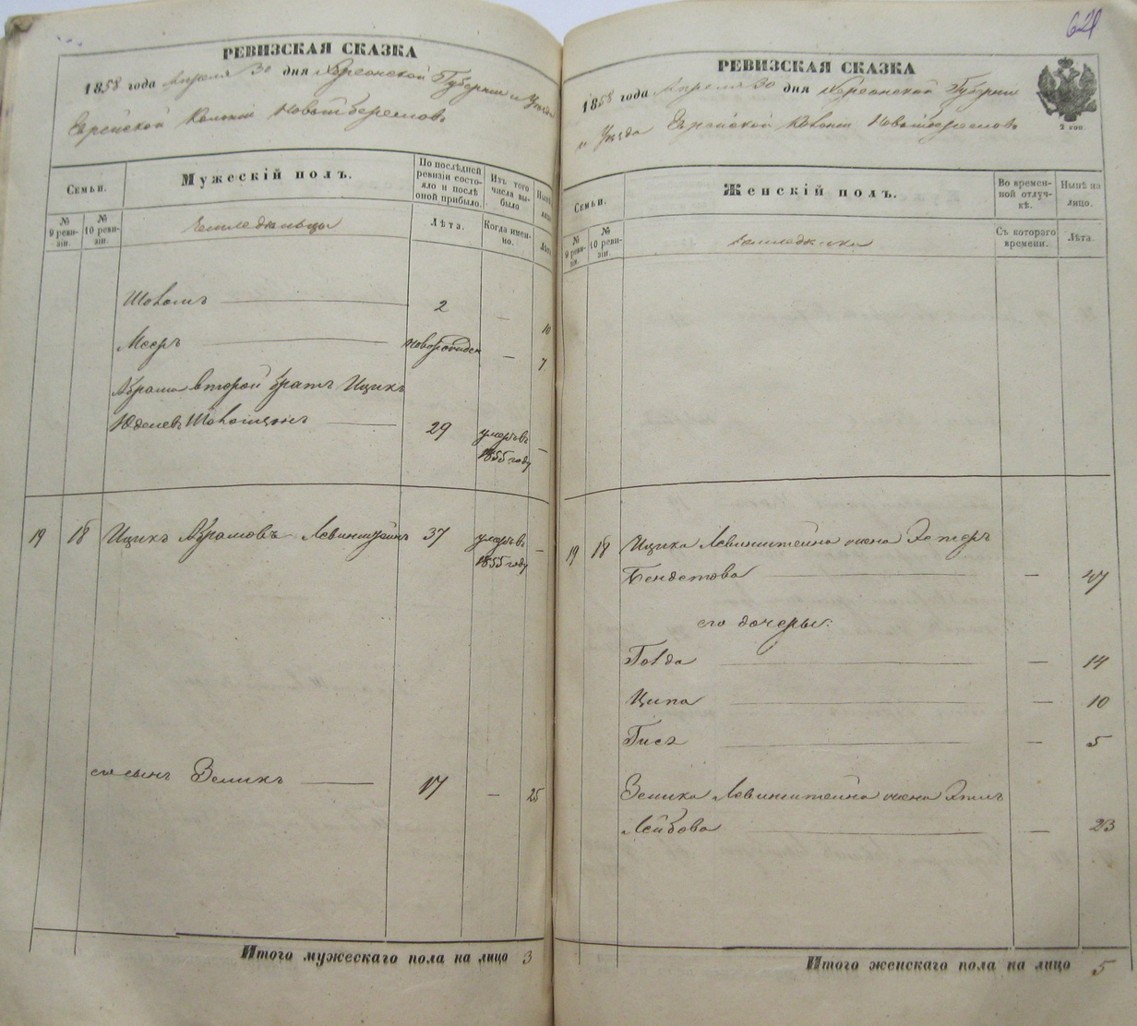 РЕВИЗСКАЯ СКАЗКА
1858 года Апреля 30 дня Херсонской Губернии и Уезда
Еврейской Колонии Новый Береслов
Семьи.
Мужескій полъ.
По послѣдней ревизіи состояло и послѣ оной прибыло.
Изъ того числа выбыло
Нынѣ на лицо.
№ 9 ревизіи.
№ 10 ревизіи.
Земледельцы
Лѣта.
Когда именно.
Лѣта.
Шолом 2 — 10
Меер новорожден — 7
Абрама второй брат Ицик
Юделев 29 умер в
1855 году —
19 18 Ицик Абрамов Левинштейн 37 умер в —
1855 году
его сын Зелик 17 — 25
Итого мужескаго пола на лицо 3
621
РЕВИЗСКАЯ СКАЗКА
1858 года Апреля 30 дня Херсонской Губернии
и Уезда Еврейской Колонии Новый Береслов
2 коп.
Семьи.
Женскій полъ.
Во временной отлучкѣ.
Нынѣ на лицо.
№ 9 ревизіи.
№ 10 ревизіи.
Съ котораго времени.
Лѣта.
19 18 Ицика Левинштейна жена Эстер
Бендетова — 47
его дочеры:
Голда — 14
Ципа — 10
Гися — 5
Зелика Левинштейна жена Этил
Лейбова — 23
Итого женскаго пола на лицо 5